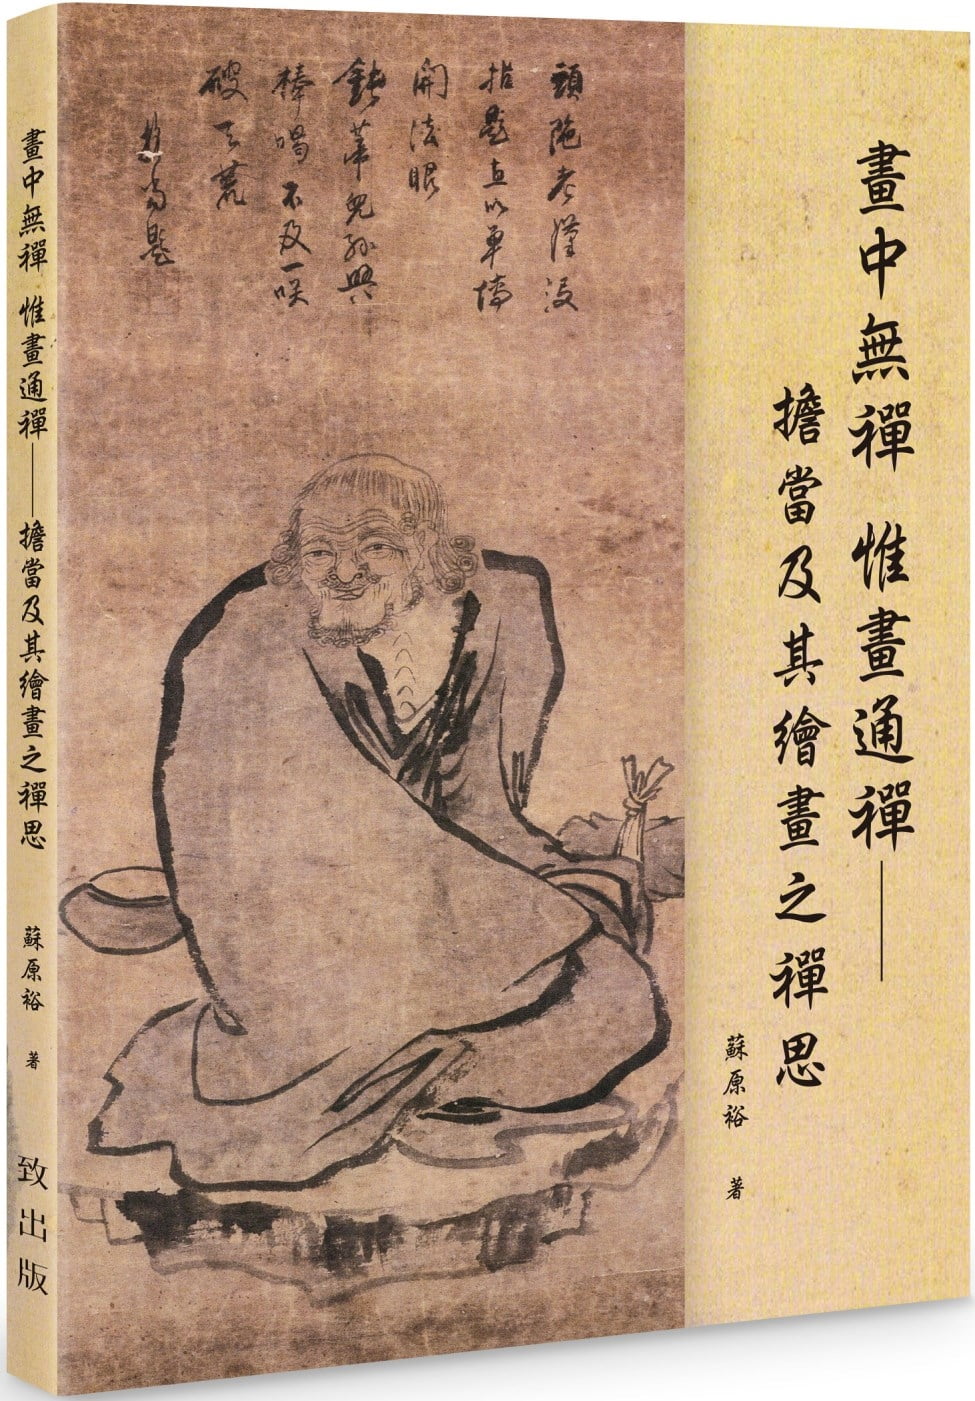 畫中無禪 惟畫通禪——
擔當及其繪畫之禪思
蘇原裕 著
頭陁老漢沒
指直以單傳
開法眼
兒孫與
棒喝不及一咲
破天荒
擔當題
畫中無禪 惟畫通禪——擔當及其繪畫之禪思
蘇原裕 著
致出版